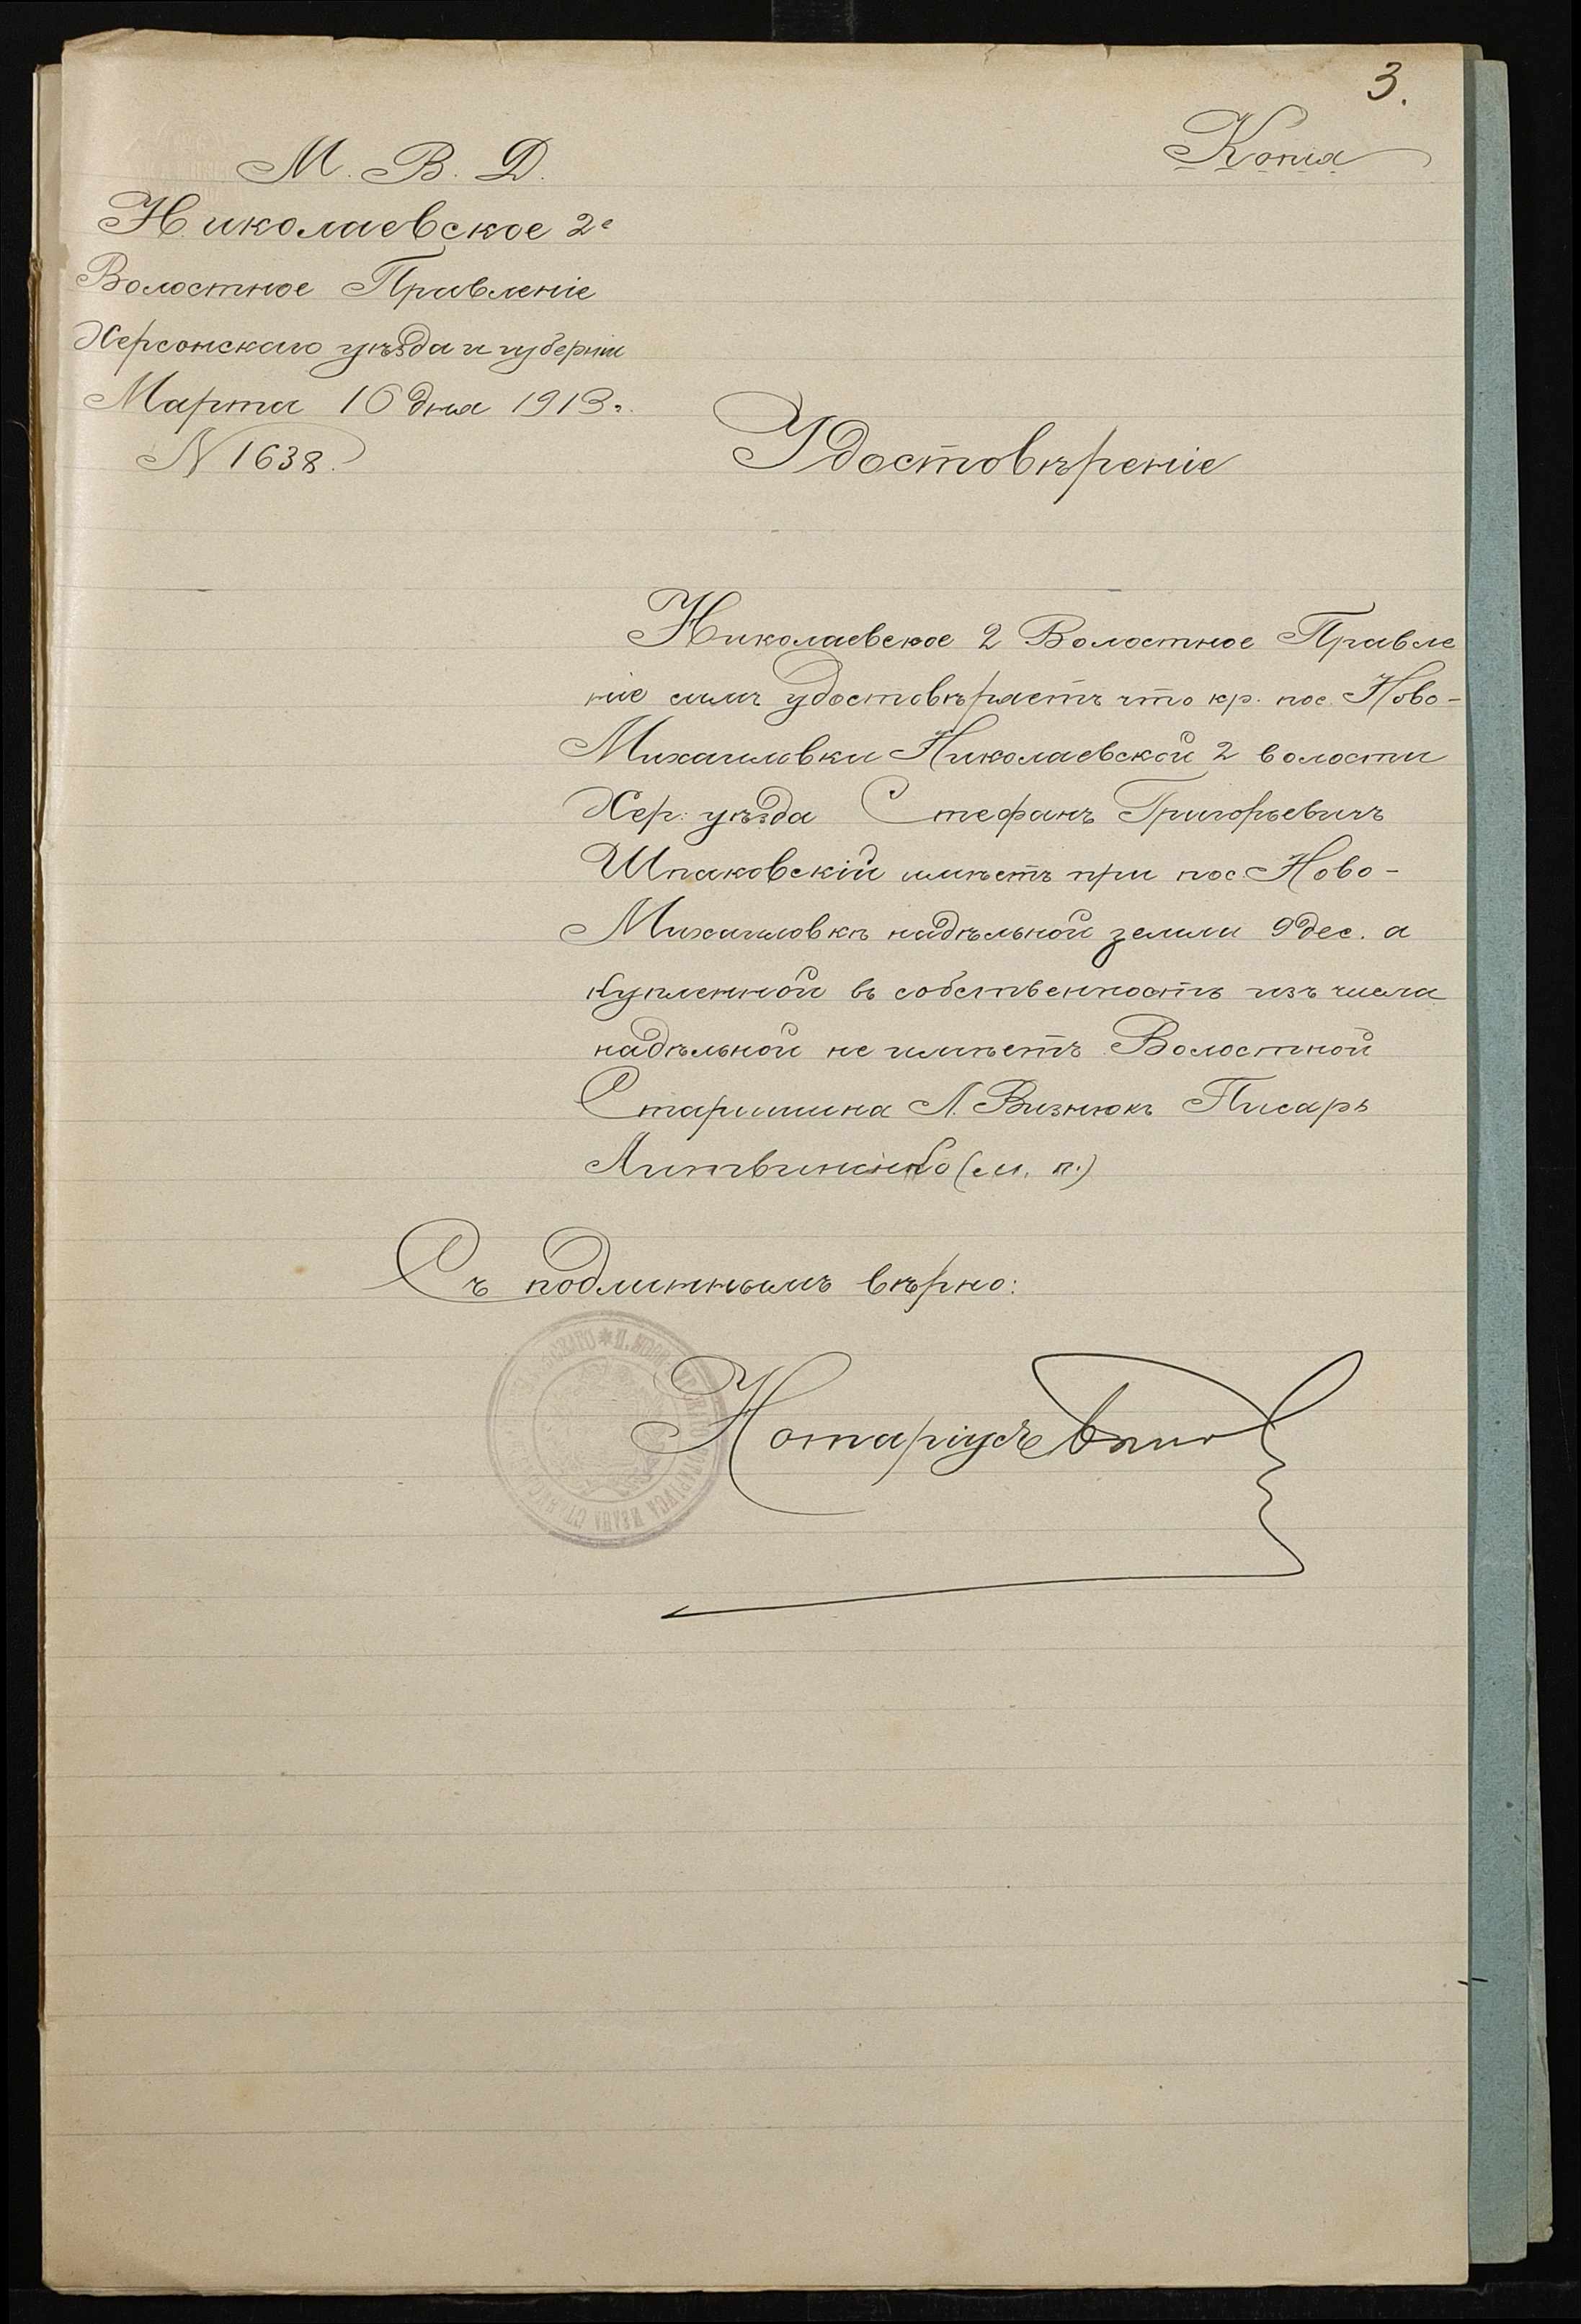 3.
Копія
М. В. Д.
Николаевское 2е
Волостное Правленіе
Херсонскаго уѣзда и губерніи
Марта 16 дня 1913 г.
N 1638.
Удостовѣреніе
Николаевское 2 Волостное Правле
ніе симъ удостовѣряетъ что кр. пос. Ново-
Михайловки Николаевской 2 волости
Хер. уѣзда Стефанъ Григорьевичъ
Шпаковскій имѣетъ при пос. Ново-
Михайловкѣ надѣльной земли 9 дес. а
купленной въ собственность изъ числа
надѣльной не имѣетъ Волостной
Старшина Л. Визнюкъ Писарь
Литвиненко (м. п.)
Съ подлиннымъ вѣрно:
Нотаріусъ